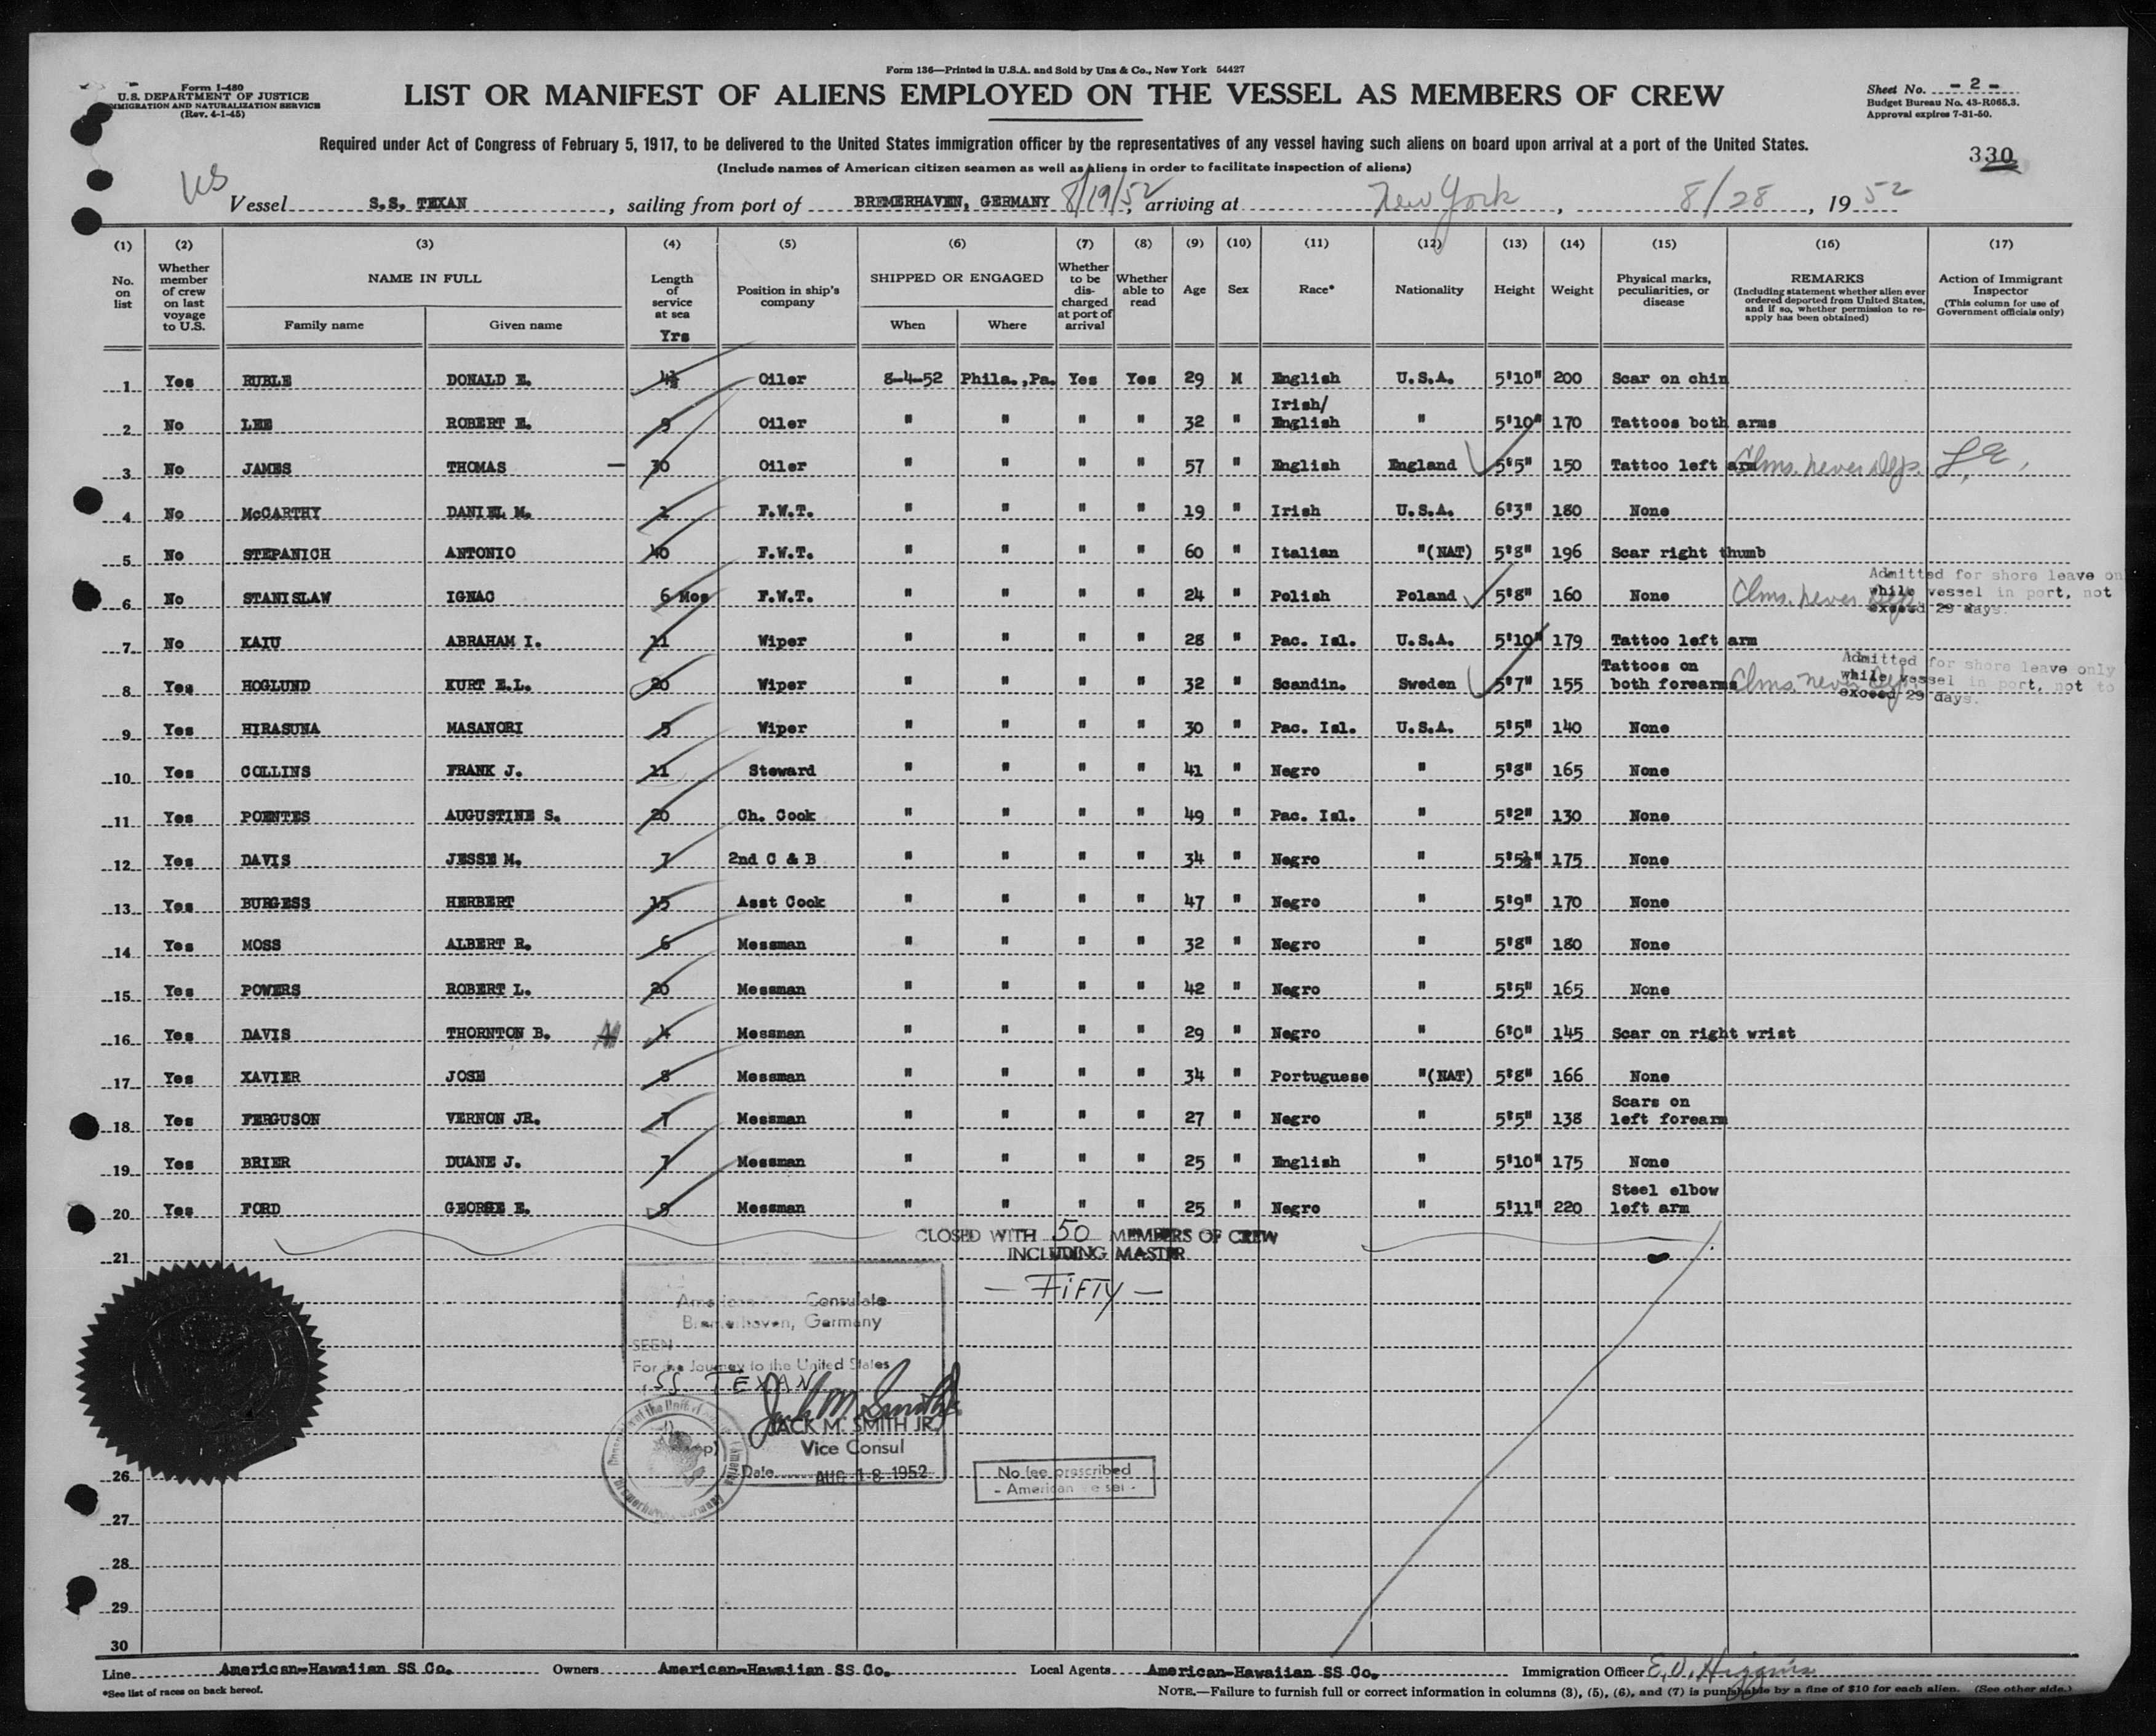 Form 136—Printed in U.S.A. and Sold by Unz & Co., New York 54427
Form I-480
U.S. DEPARTMENT OF JUSTICE
IMMIGRATION AND NATURALIZATION SERVICE
(Rev. 4-1-45)
LIST OR MANIFEST OF ALIENS EMPLOYED ON THE VESSEL AS MEMBERS OF CREW
Sheet No. - 2 -
Budget Bureau No. 43-R065.3.
Approval expires 7-31-50.
Required under Act of Congress of February 5, 1917, to be delivered to the United States immigration officer by the representatives of any vessel having such aliens on board upon arrival at a port of the United States.
(Include names of American citizen seamen as well as aliens in order to facilitate inspection of aliens)
330
US
Vessel S.S. TEXAN, sailing from port of BREMERHAVEN, GERMANY 8/19/52, arriving at New York, 8/28, 1952
(1) (2) (3) (4) (5) (6) (7) (8) (9) (10) (11) (12) (13) (14) (15) (16) (17)
No. on list
Whether member of crew on last voyage to U.S.
NAME IN FULL
Family name
Given name
Length of service at sea
Yrs
Position in ship's company
SHIPPED OR ENGAGED
When
Where
Whether to be discharged at port of arrival
Whether able to read
Age
Sex
Race*
Nationality
Height
Weight
Physical marks, peculiarities, or disease
REMARKS
(Including statement whether alien ever ordered deported from United States, and if so, whether permission to re-apply has been obtained)
Action of Immigrant Inspector
(This column for use of Government officials only)
1 Yes RUBLE DONALD E. 4½ Oiler 8-4-52 Phila.,Pa. Yes Yes 29 M English U.S.A. 5'10" 200 Scar on chin
2 No LEE ROBERT E. 9 Oiler " " " " 32 " Irish/ English " 5'10" 170 Tattoos both arms
3 No JAMES THOMAS — 30 Oiler " " " " 57 " English England 5'5" 150 Tattoo left arm Clms. never dep.
4 No McCARTHY DANIEL M. 1 F.W.T. " " " " 19 " Irish U.S.A. 6'3" 180 None
5 No STEPANICH ANTONIO 40 F.W.T. " " " " 60 " Italian "(NAT) 5'8" 196 Scar right thumb
6 No STANISLAW IGNAC 6 Mos F.W.T. " " " " 24 " Polish Poland 5'8" 160 None Clms. never dep. Admitted for shore leave on while vessel in port, not exceed 29 days.
7 No KAIU ABRAHAM I. 11 Wiper " " " " 28 " Pac. Isl. U.S.A. 5'10" 179 Tattoo left arm
8 Yes HOGLUND KURT E.L. 20 Wiper " " " " 32 " Scandin. Sweden 5'7" 155 Tattoos on both forearms Clms. never dep. Admitted for shore leave only while vessel in port, not to exceed 29 days.
9 Yes HIRASUNA MASANORI 5 Wiper " " " " 30 " Pac. Isl. U.S.A. 5'5" 140 None
10 Yes COLLINS FRANK J. 11 Steward " " " " 41 " Negro " 5'8" 165 None
11 Yes POENTES AUGUSTINE S. 20 Ch. Cook " " " " 49 " Pac. Isl. " 5'2" 130 None
12 Yes DAVIS JESSE M. 7 2nd C & B " " " " 34 " Negro " 5'5½" 175 None
13 Yes BURGESS HERBERT 15 Asst Cook " " " " 47 " Negro " 5'9" 170 None
14 Yes MOSS ALBERT R. 6 Messman " " " " 32 " Negro " 5'8" 180 None
15 Yes POWERS ROBERT L. 20 Messman " " " " 42 " Negro " 5'5" 165 None
16 Yes DAVIS THORNTON B. 4 Messman " " " " 29 " Negro " 6'0" 145 Scar on right wrist
17 Yes XAVIER JOSE 8 Messman " " " " 34 " Portuguese "(NAT) 5'8" 166 None
18 Yes FERGUSON VERNON JR. 7 Messman " " " " 27 " Negro " 5'5" 138 Scars on left forearm
19 Yes BRIER DUANE J. 7 Messman " " " " 25 " English " 5'10" 175 None
20 Yes FORD GEORGE E. 9 Messman " " " " 25 " Negro " 5'11" 220 Steel elbow left arm
CLOSED WITH 50 MEMBERS OF CREW
21 INCLUDING MASTER
— FIFTY —
American Consulate
Bremerhaven, Germany
SEEN
For the Journey to the United States
SS. TEXAN
Jack M. Smith Jr.
JACK M. SMITH JR.
Vice Consul
Date AUG 18 1952
No fee prescribed
- American vessel -
26
27
28
29
30
Line American-Hawaiian SS Co. Owners American-Hawaiian SS Co. Local Agents American-Hawaiian SS Co. Immigration Officer E. V. Higgins
*See list of races on back hereof.
NOTE.—Failure to furnish full or correct information in columns (3), (5), (6), and (7) is punishable by a fine of $10 for each alien. (See other side.)